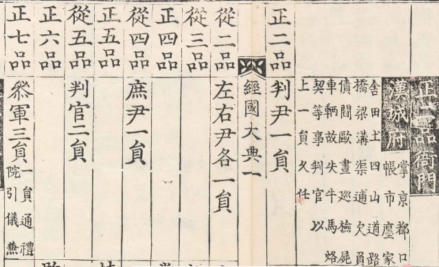 正二品衙門
漢城府
掌京都口
帳市廛家
舍田土四山道路
橋梁溝渠逋欠負
債鬪敺晝巡檢屍
車輛故失牛馬烙
契等事判官以
上一員久任
正二品
判尹一員
經國大典一
從二品
左右尹各一員
從三品
正四品
從四品
庶尹一員
正五品
從五品
判官二員
正六品
正七品
叅軍三員
一員通禮
院引儀兼